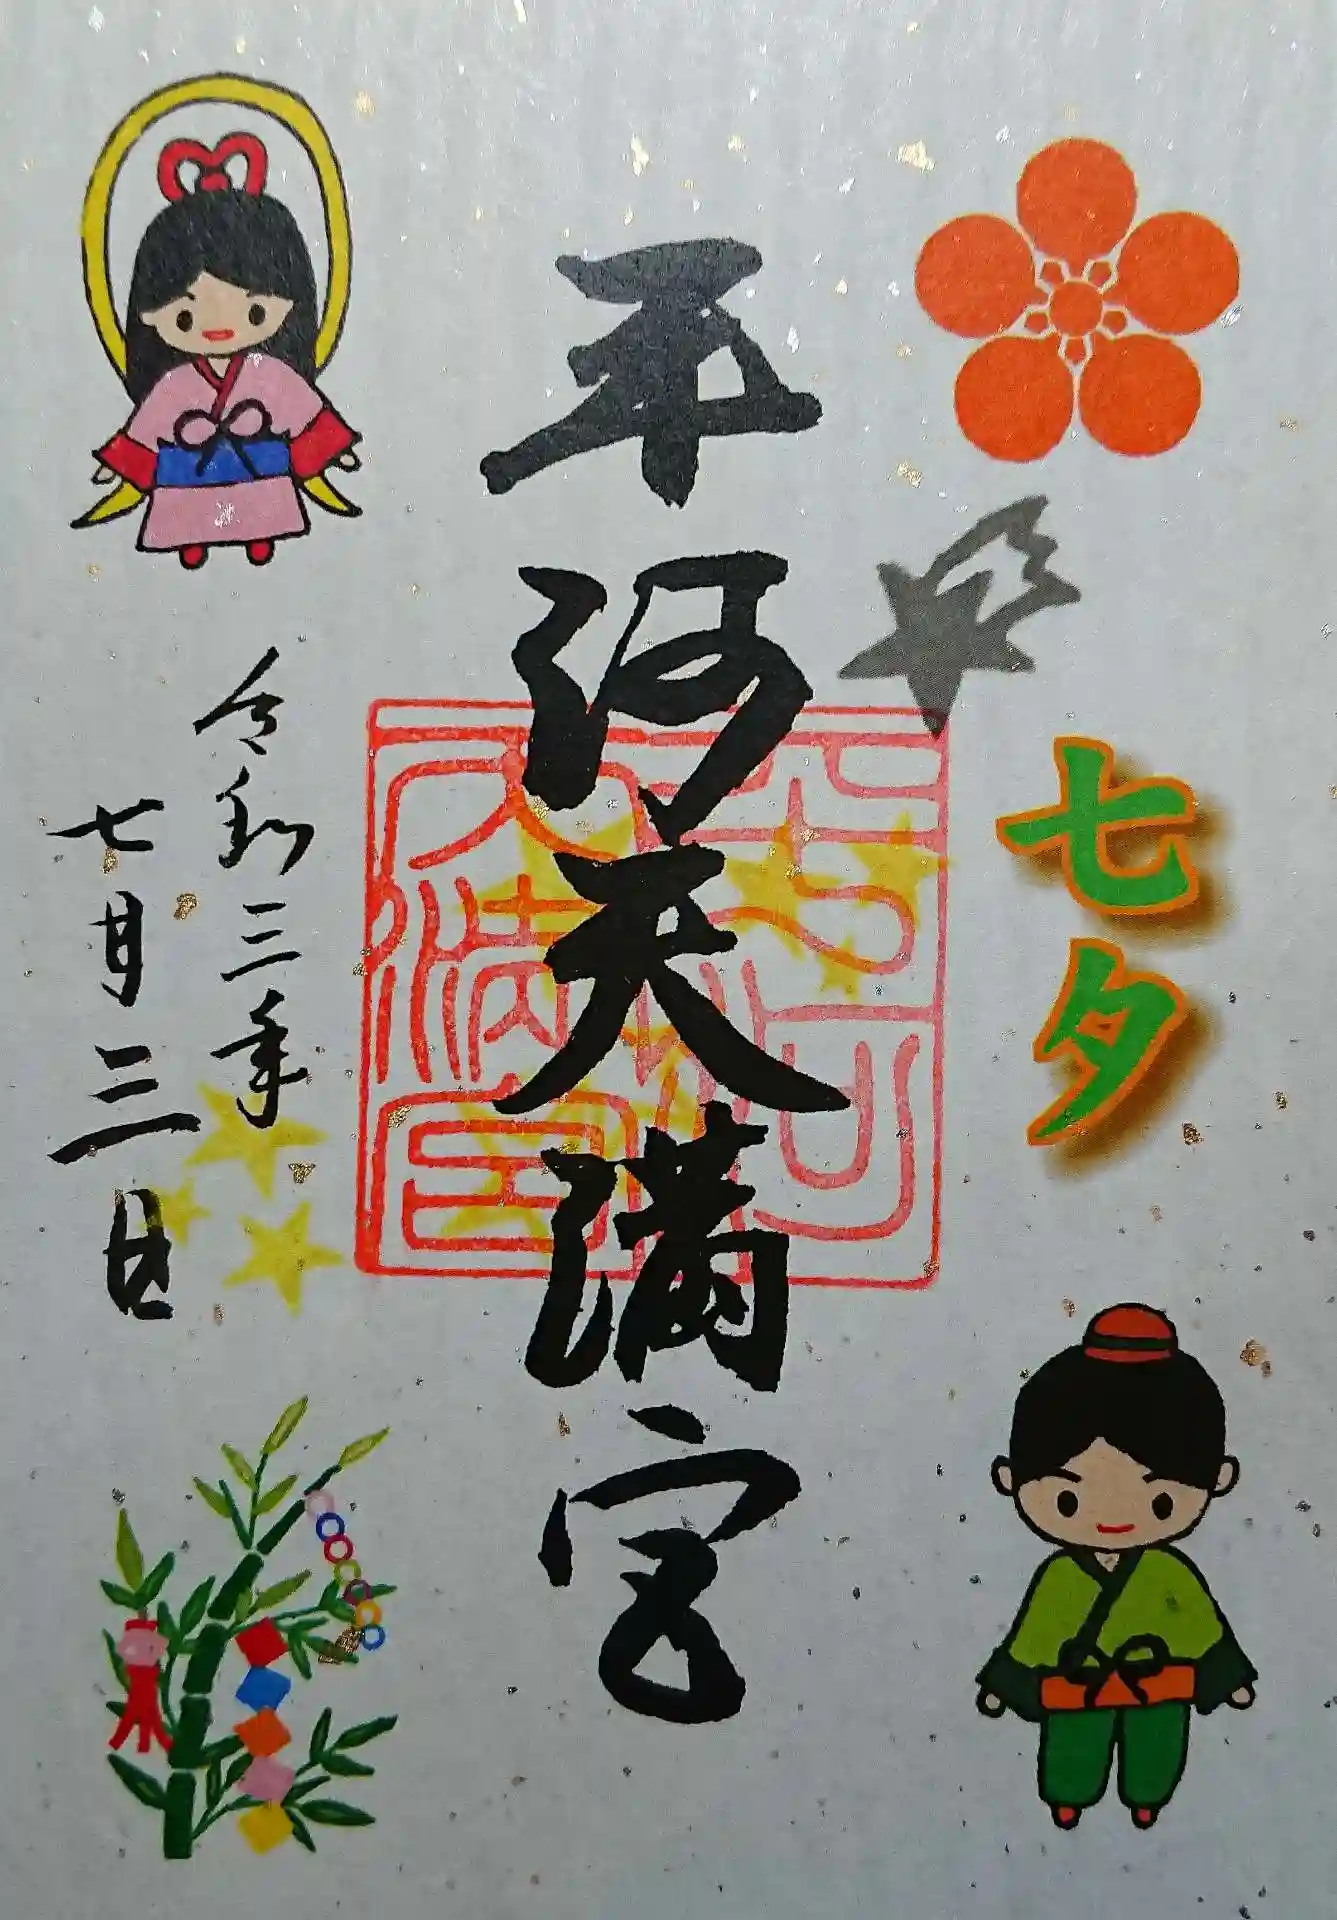 七夕
平河天満宮
平河
天満宮
令和三年
七月三日